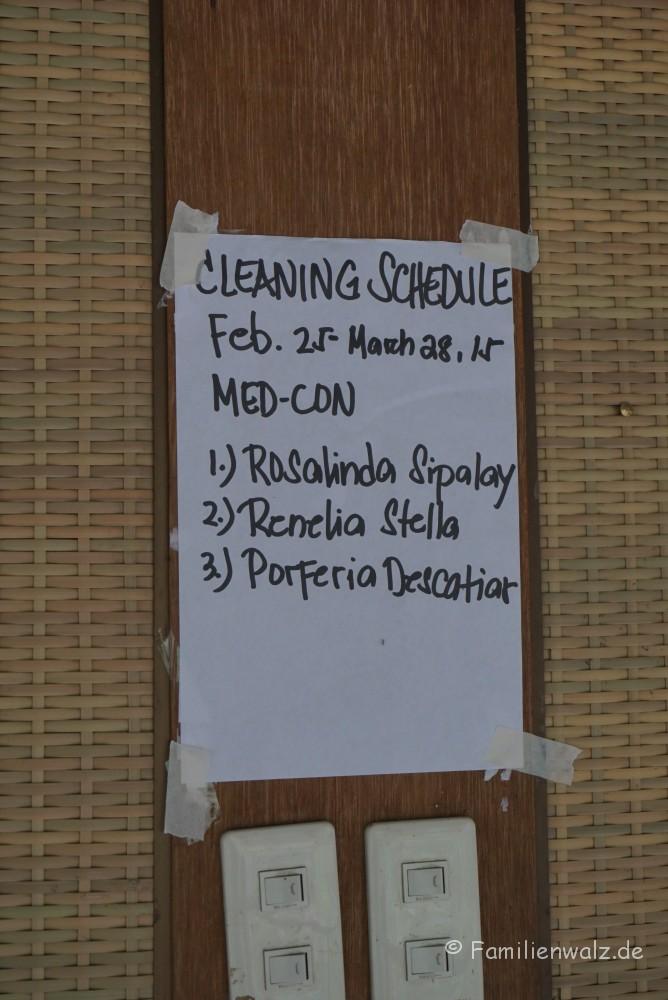 CLEANING SCHEDULE
Feb. 25 - March 28, 15
MED-CON
1.) Rosalinda Sipalay
2.) Renelia Stella
3.) Porferia Descatiar
© Familienwalz.de